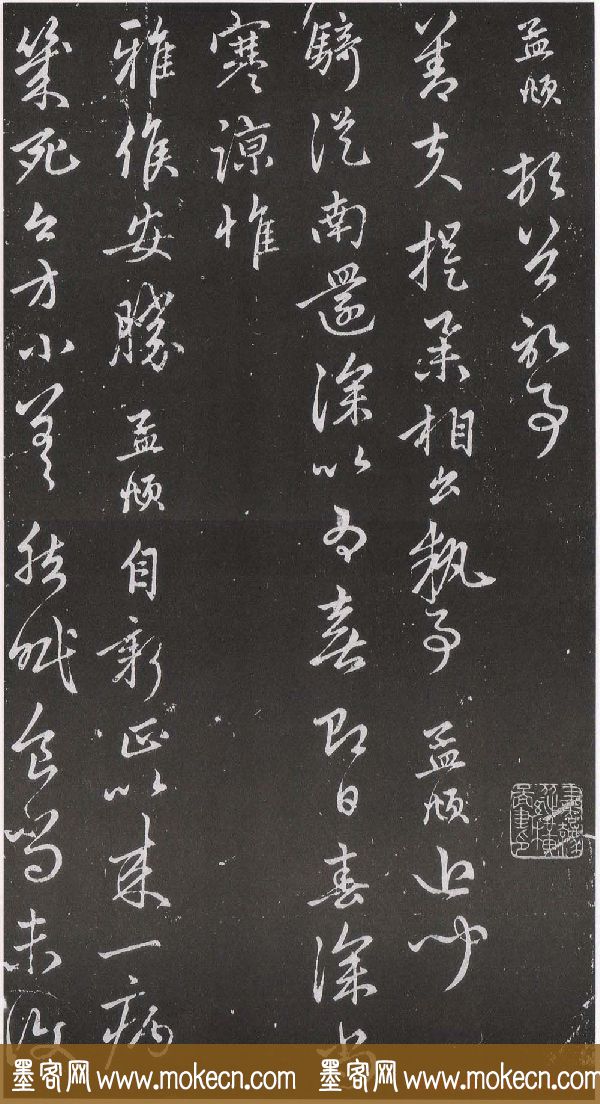 孟頫 頓首
善夫提舉相公執事 孟頫近聞
騎從南還深以為喜即日春深尚
寒諒惟
雅候安勝 孟頫自新正以來一病
幾死今方小差然眠食尚未復
墨客网 www.mokecn.com 墨客网 www.mokecn.com